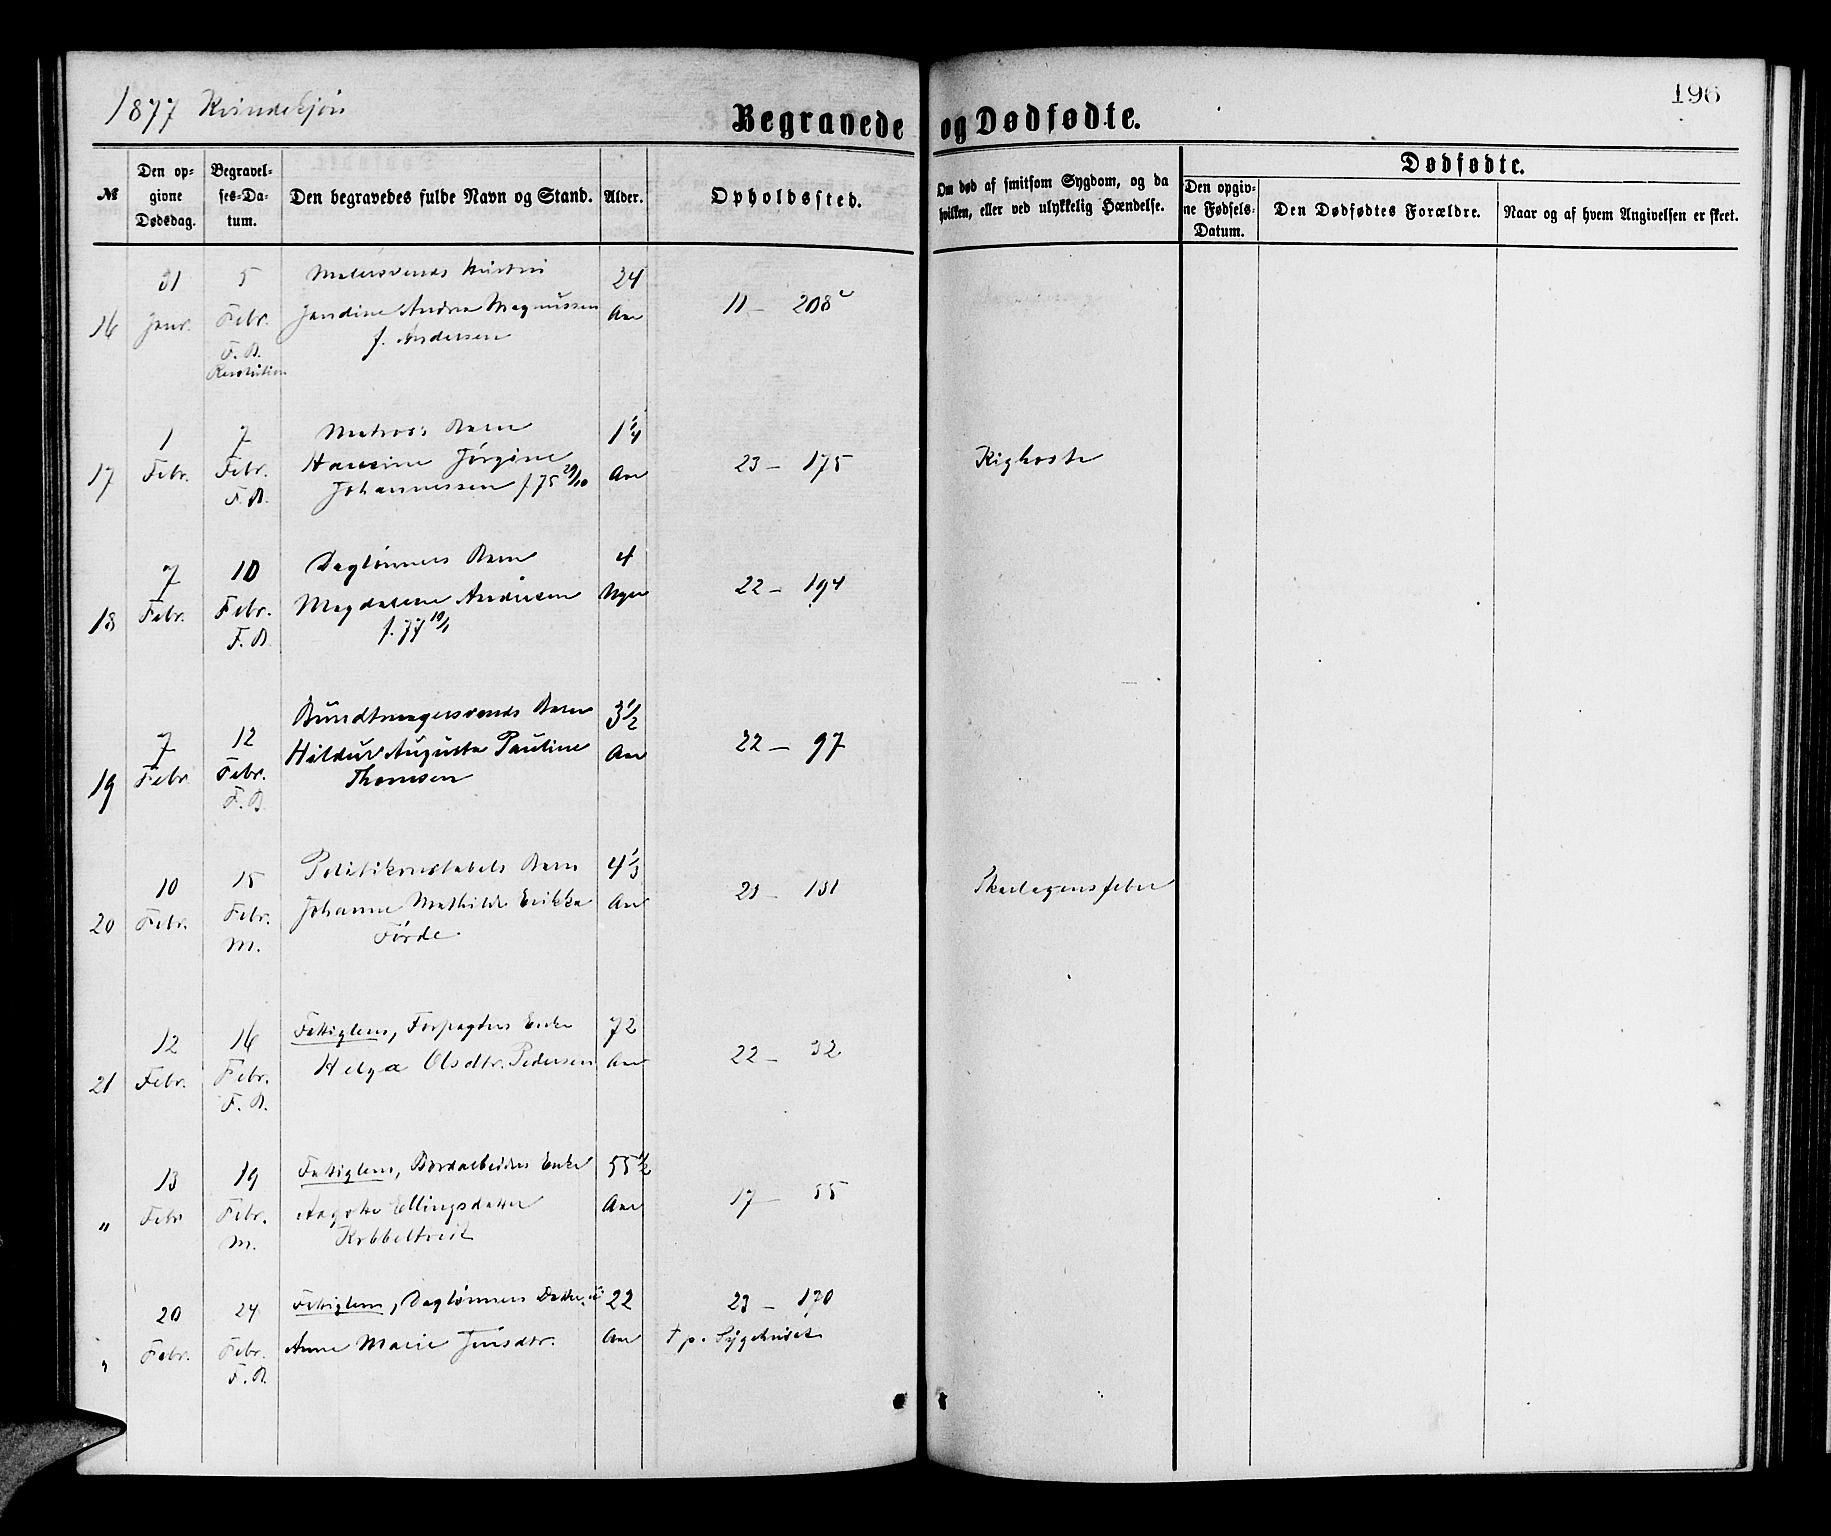 1877 Kvindekjön
Begravede og Dødfødte.
196
№
Den opgivne Dødsdag.
Begravelses-Datum.
Den begravedes fulde Navn og Stand.
Alder.
Opholdssted.
Om død af smitsom Sygdom, og da hvilken, eller ved ulykkelig Hændelse.
Dødfødte.
Den opgivne Fødsels-Datum.
Den Dødfødtes Forældre.
Naar og af hvem Angivelsen er skeet.
31 5 Malersvends Hustru 24
16 Janr. Febr. Jandine Andrea Magnussen Aar 11 – 208c
F. B. f. Andersen
1 7 Matros's Barn 1 1/4
17 Febr. Febr. Hansine Jørgine Aar 23 – 175 Kighoste
F. B. Johannessen f. 75 29/10
7 10 Daglønners Barn 4
18 Febr. Febr. Magdalene Andersen Uger 22 – 194
F. B. f. 77 10/1
7 12 Bundtmagersvends Barn 3 1/2
19 Febr. Febr. Hildur Augusta Pauline Aar 22 – 97
F. B. Thomsen
10 15 Politikonstabels Barn 4 1/3
20 Febr. Febr. Johanne Mathilde Erikka Aar 23 – 131 Skarlagensfeber
M. Førde.
12 16 Fattiglem, Forpagters Enke 72
21 Febr. Febr. Helga Olsdtr. Pedersen Aar 22 – 32
F. B.
13 19 Fattiglem, Enke 55 1/2
" Febr. Febr. Aagothe Ellingsdatter Aar 17 – 55
M. Kobbeltvedt
20 24 Fattiglem, Daglønners Datter 22 23 – 170
" Febr. Febr. Anne Marie Jensdtr. Aar † p. Sygehuset
F. B.